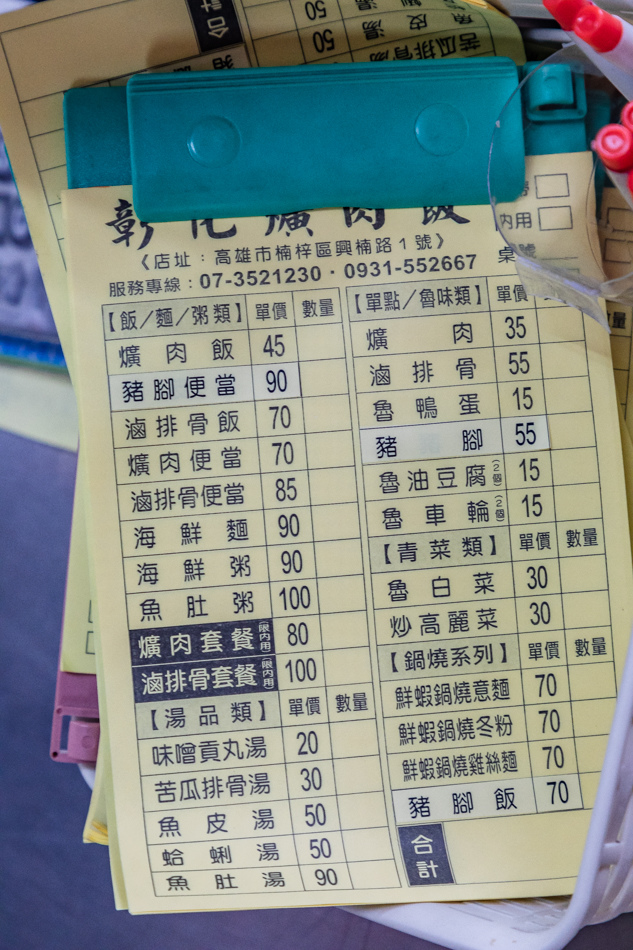 彰化爌肉飯
《店址：高雄市楠梓區興楠路1號》
服務專線：07-3521230・0931-552667
內用
桌號
【飯／麵／粥類】 單價 數量
爌肉飯 45
豬腳便當 90
滷排骨飯 70
爌肉便當 70
滷排骨便當 85
海鮮麵 90
海鮮粥 90
魚肚粥 100
爌肉套餐(限內用) 80
滷排骨套餐(限內用) 100
【湯品類】 單價 數量
味噌貢丸湯 20
苦瓜排骨湯 30
魚皮湯 50
蛤蜊湯 50
魚肚湯 90
【單點／魯味類】 單價
爌肉 35
滷排骨 55
魯鴨蛋 15
豬腳 55
魯油豆腐(2個) 15
魯車輪(2個) 15
【青菜類】 單價 數量
魯白菜 30
炒高麗菜 30
【鍋燒系列】 單價 數量
鮮蝦鍋燒意麵 70
鮮蝦鍋燒冬粉 70
鮮蝦鍋燒雞絲麵 70
豬腳飯 70
合計
合計
50
50
皮湯
苦瓜排骨湯